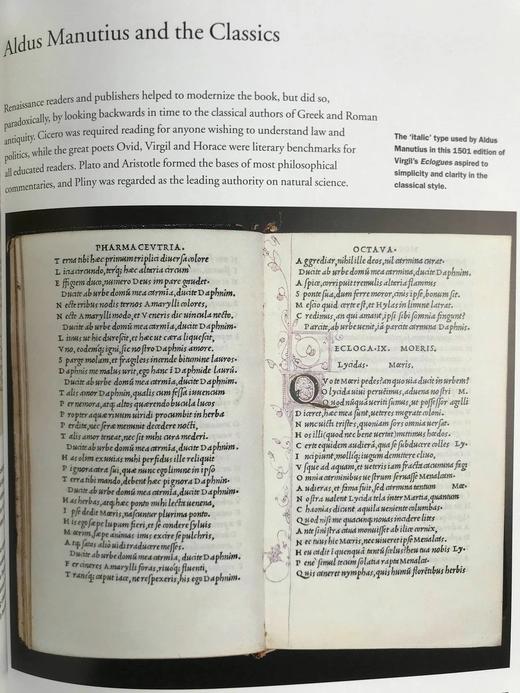 Aldus Manutius and the Classics
Renaissance readers and publishers helped to modernize the book, but did so,
paradoxically, by looking backwards in time to the classical authors of Greek and Roman
antiquity. Cicero was required reading for anyone wishing to understand law and
politics, while the great poets Ovid, Virgil and Horace were literary benchmarks for
all educated readers. Plato and Aristotle formed the bases of most philosophical
commentaries, and Pliny was regarded as the leading authority on natural science.
The 'italic' type used by Aldus
Manutius in this 1501 edition of
Virgil's Eclogues aspired to
simplicity and clarity in the
classical style.
PHARMACEVTRIA.
T erna tibi hæc primum triplici diuersa colore
L icia circundo, terq; hæc altaria circum
E ffigiem duco, numero Deus impare gaudet.
Ducite ab urbe domũ mea carmina, ducite Daphnim.
N ecte tribus nodis ternos Amarylli colores,
N ecte Amarylli modo, et Veneris dic uincula necto.
Ducite ab urbe domũ mea carmina, ducite Daphnim.
L imus ut hic durescit, et hæc ut cæra liquescit,
V no, eodemq; igni, sic nostro Daphnis amore.
S parge molam, et fragiles incende bitumine lauros.
Daphnis me malus urit, ego hanc ĩ Daphnide laurũ.
Ducite ab urbe domũ mea carmina, ducite Daphnim.
T alis amor Daphnin, qualis cum fessa iuuencum
P er nemora, atq; altos quærendo bucula lucos
P ropter aquæ riuum uiridi procumbit in herba
P erdita, nec seræ meminit decedere nocti,
T alis amor teneat, nec sit mihi cura mederi.
Ducite ab urbe domũ mea carmina, ducite Daphnim.
H as olim exuuias mihi perfidus ille reliquit
P ignora cara sui, quæ nunc ego limine in ipso
T erra tibi mando, debent hæc pignora Daphnin.
Ducite ab urbe domũ mea carmina, ducite Daphnim.
H as herbas, atq; hæc ponto mihi lecta uenena,
I pse dedit Mœris, nascuntur plurima ponto.
H is ego sæpe lupum fieri, et se condere syluis
M œrim, sæpe animas imis excire sepulchris,
A tq; satas alio uidi traducere messes.
Ducite ab urbe domũ mea carmina, ducite Daphnim.
F er cineres Amarylli foras, riuoq; fluenti,
T ransq; caput iace, ne respexeris, his ego Daphnim
OCTAVA.
A ggrediar, nihil ille deos, nil carmina curat.
Ducite ab urbe domũ mea carmina, ducite Daphnim.
A spice, corripuit tremulis altaria flammis
S ponte sua, dum ferre moror, cinis ipse, bonum sit.
N escio quid certe est, et Hylas in limine latrat.
C redimus, an qui amant, ipsi sibi somnia fingunt?
Parcite, ab urbe uenit, iã parcite carmina Daphnis.
ECLOGA.IX. MOERIS.
Lycidas. Mœris.
Q Vo te Mœri pedes? an quo uia ducit in urbem?
O lycida uiui peruenimus, aduena nostri M.
Q uod nũquã ueriti sumus, ut possessor agelli
D iceret, hæc mea sunt, ueteres migrate coloni.
N unc uicti tristes, quoniam fors omnia uersat.
H os illi (quod nec bene uertat) mittimus hœdos.
C erte equidem audieram, qua se subducere colles Ly.
I ncipiunt, mollíq; iugum demittere cliuo,
V sque ad aquam, et ueteris iam fracta cacumina fagi
O mnia carminibus uestrum seruasse Menalcan.
A udieras, et fama fuit, sed carmina tantum Mœ.
N ostra ualent Lycida tela inter Martia, quantum
C haonias dicunt aquila ueniente columbas.
Q uod nisi me quacunq; nouas incidere lites
A nte sinistra caua monuisset ab ilice cornix,
N ec tuus hic Mœris, nec uiueret ipse Menalcas.
H eu cadit ĩ quenquã tantũ scelus? heu tua nobis Ly.
P ene simul tecum solatia rapta Menalca.
Q uis caneret nymphas, quis humũ florẽtibus herbis